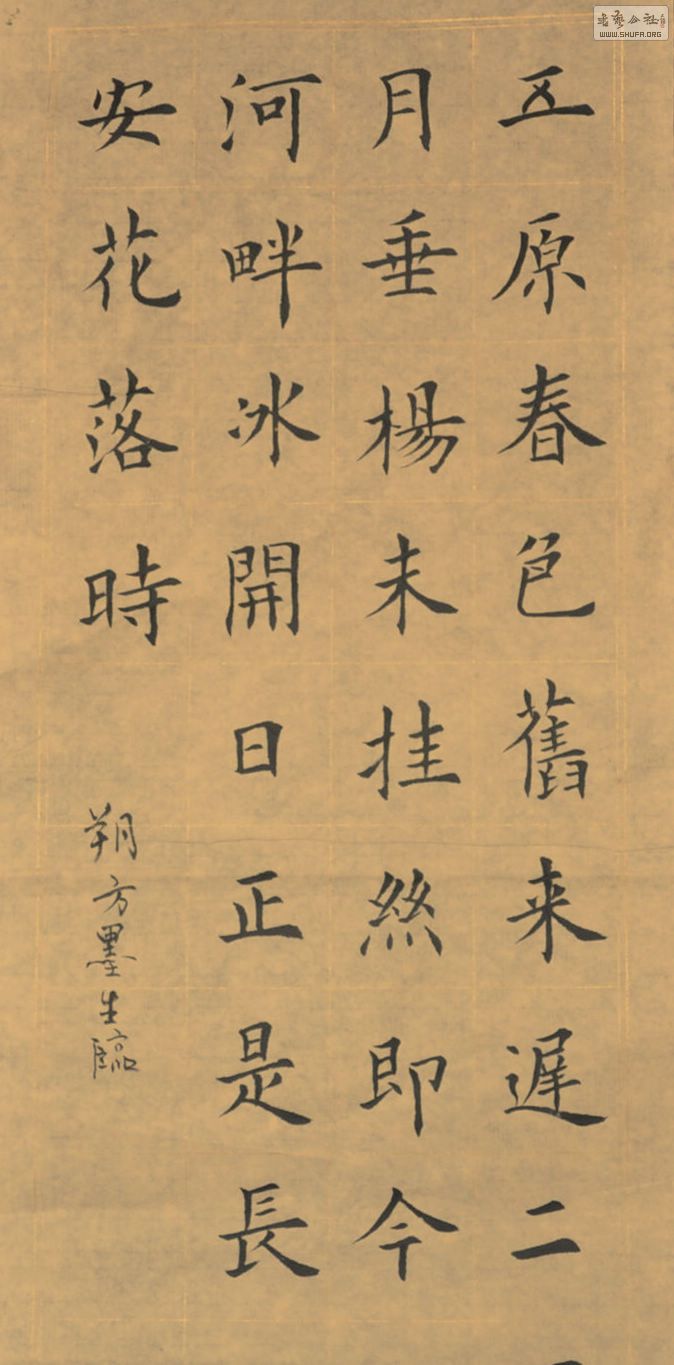 五原春色舊来遲二
月垂楊未挂絲即今
河畔冰開日正是長
安花落時
朔方墨生臨
書藝公社
WWW.SHUFA.ORG